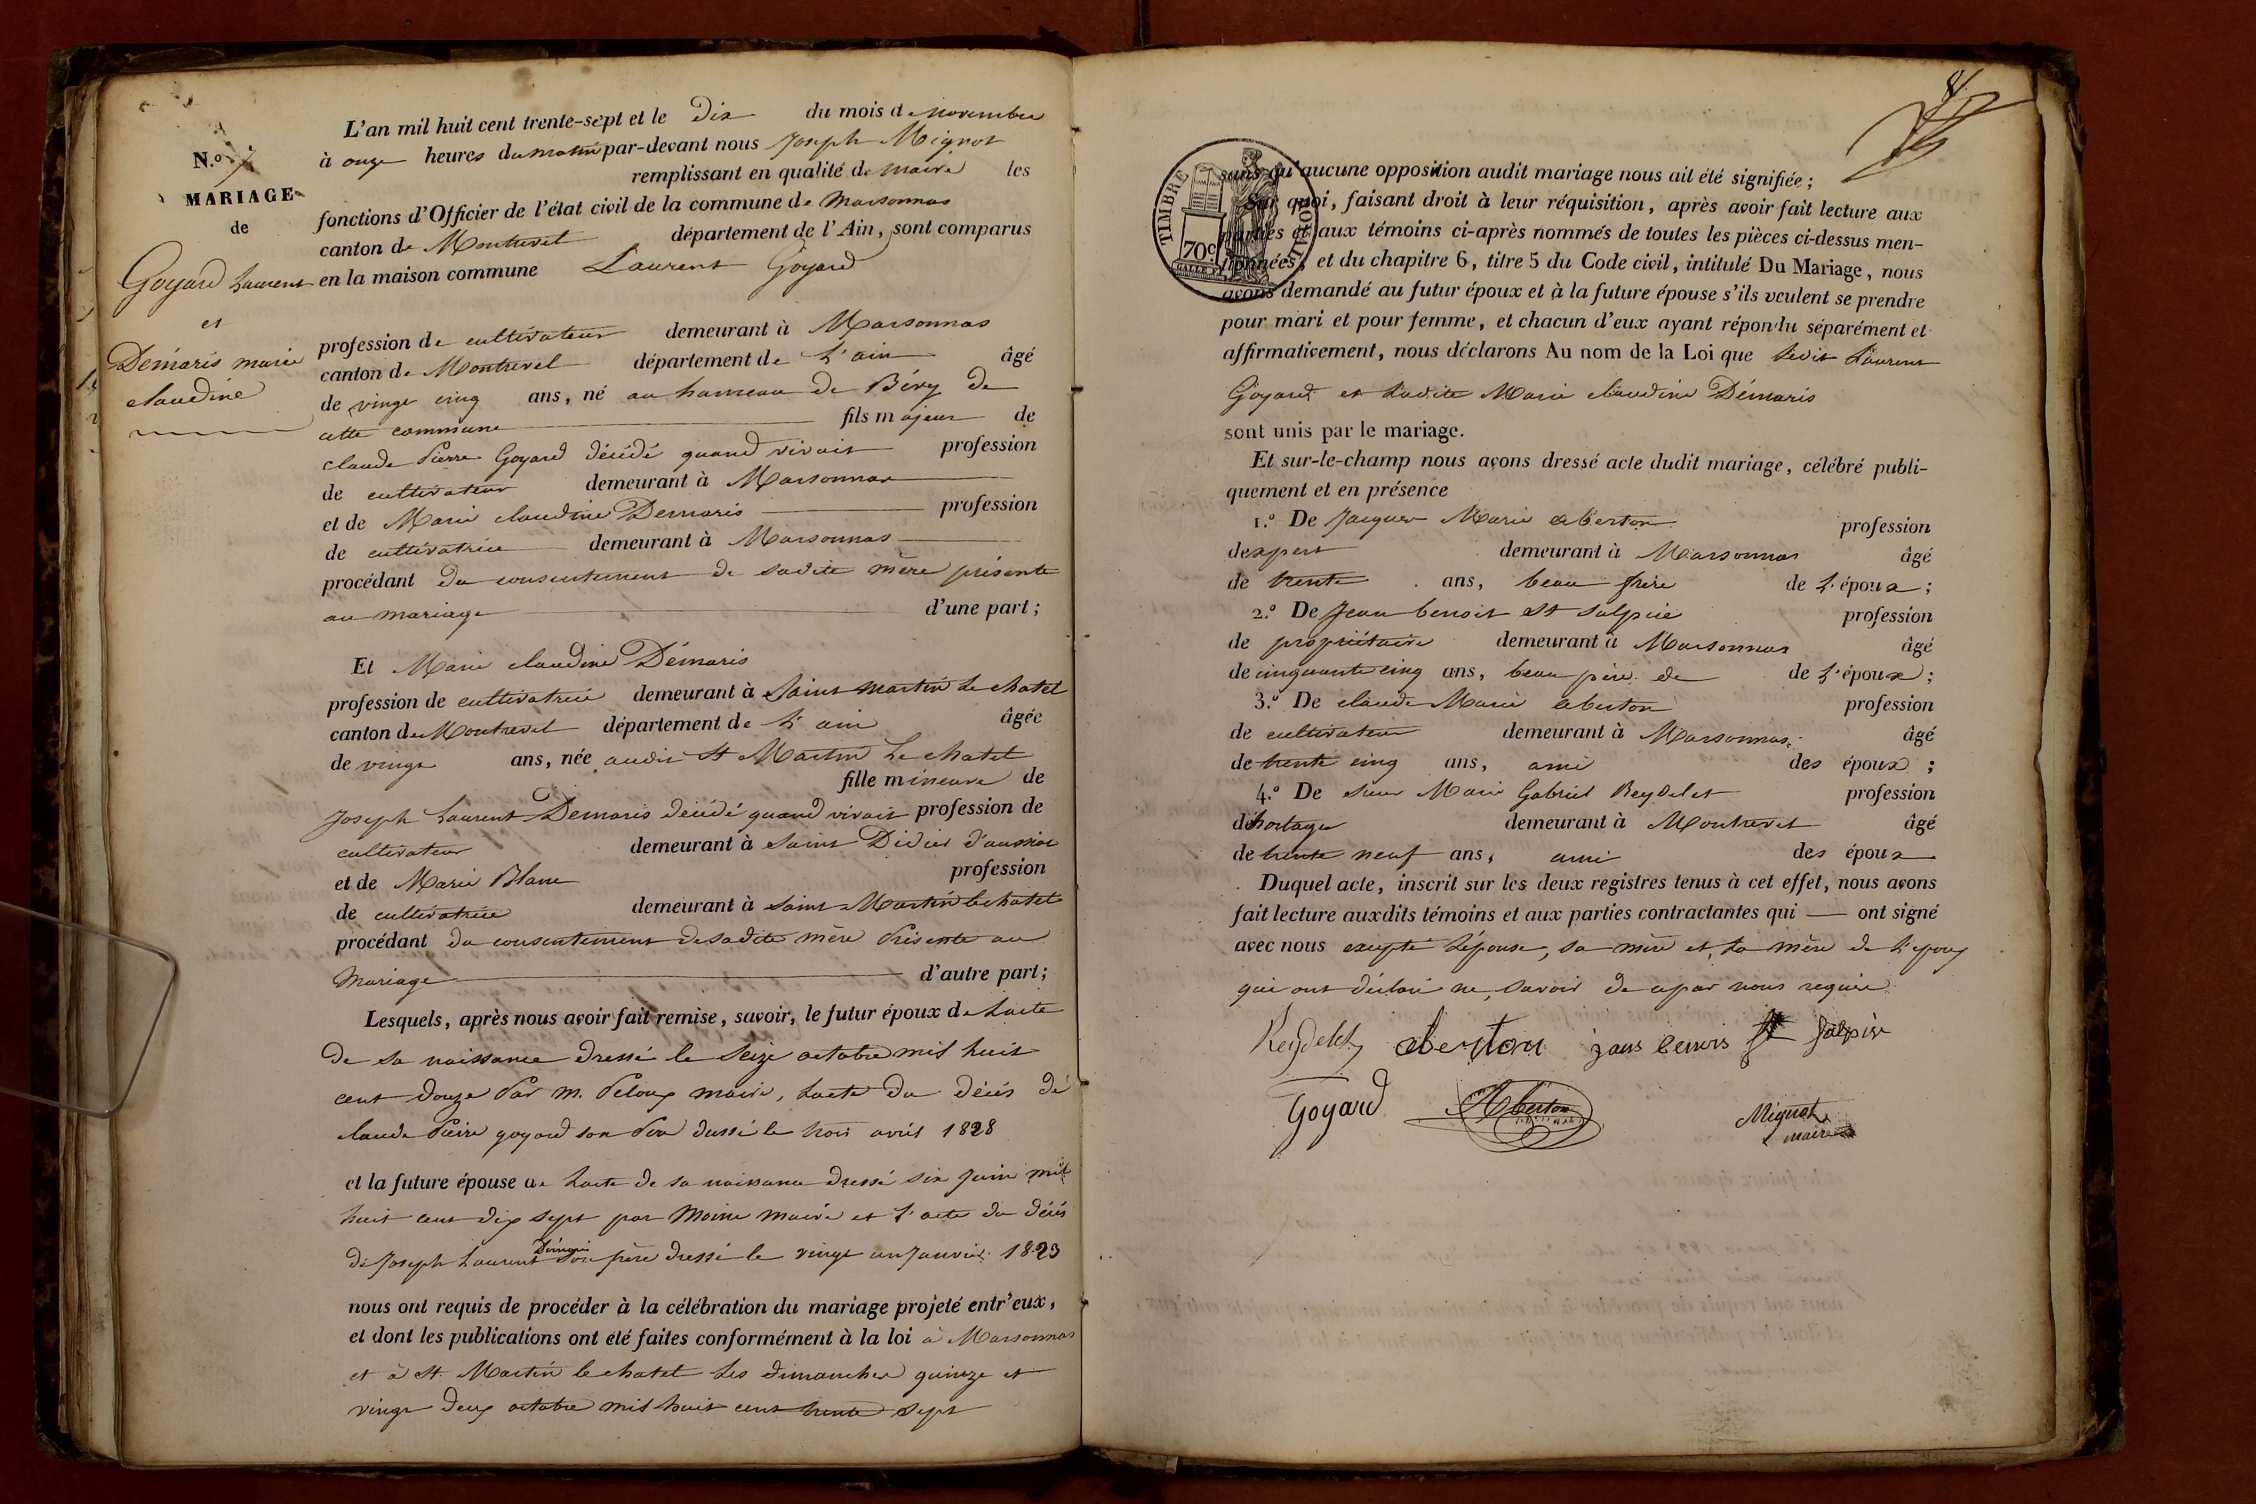 N.o 7
MARIAGE
de
Goyard Laurent
et
Démaris marie
claudine
L'an mil huit cent trente-sept et le Dix du mois de novembre
à onze heures du matin par-devant nous Joseph Mignot
remplissant en qualité de maire les
fonctions d'Officier de l'état civil de la commune de Marsonnas
canton de Montrevel département de l'Ain, sont comparus
en la maison commune Laurent Goyard
profession de cultivateur demeurant à Marsonnas
canton de Montrevel département de L'ain âgé
de vingt cinq ans, né au hameau de Bévy de
cette commune fils majeur de
claude Pierre Goyard décédé quand vivait profession
de cultivateur demeurant à Marsonnas
et de Marie claudine Demaris profession
de cultivatrice demeurant à Marsonnas
procédant du consentement de sadite mère présente
au mariage d'une part;
Et Marie claudine Démaris
profession de cultivatrice demeurant à Saint martin le chatel
canton de Montrevel département de L'ain âgée
de vingt ans, née audit St Martin Le chatel
fille mineure de
Joseph Laurent Demaris décédé quand vivait profession de
cultivateur demeurant à Saint Didier d'aussiat
et de Marie Blanc profession
de cultivatrice demeurant à Saint Martin le chatel
procédant du consentement de sadite mère présente au
mariage d'autre part;
Lesquels, après nous avoir fait remise, savoir, le futur époux de Lacte
de sa naissance dressé le seize octobre mil huit
cent douze par m. Peloux maire, Lacte du décès de
claude Pierre goyard son père dressé le trois avril 1828
et la future épouse de Lacte de sa naissance dressé six juin mil
huit cent dix sept par Moine maire et L'acte du décès
de Joseph Laurent Démaris son père dressé le vingt un janvier 1823
nous ont requis de procéder à la célébration du mariage projeté entr'eux,
et dont les publications ont été faites conformément à la loi à Marsonnas
et à St. Martin le chatel les dimanches quinze et
vingt deux octobre mil huit cent trente sept
81
TIMBRE ROYAL
70c
sans qu'aucune opposition audit mariage nous ait été signifiée;
Sur quoi, faisant droit à leur réquisition, après avoir fait lecture aux
parties et aux témoins ci-après nommés de toutes les pièces ci-dessus men-
tionnées, et du chapitre 6, titre 5 du Code civil, intitulé Du Mariage, nous
avons demandé au futur époux et à la future épouse s'ils veulent se prendre
pour mari et pour femme, et chacun d'eux ayant répondu séparément et
affirmativement, nous déclarons Au nom de la Loi que Ledit Laurent
Goyard et Ladite Marie claudine Démaris
sont unis par le mariage.
Et sur-le-champ nous avons dressé acte dudit mariage, célébré publi-
quement et en présence
1.o De Jacques Marie aberton profession
dexpert demeurant à Marsonnas âgé
de trente ans, beau frère de L'époux;
2.o De Jean benoit St Sulpice profession
de propriétaire demeurant à Marsonnas âgé
de cinquante cinq ans, beau père de de L'époux;
3.o De claude Marie aberton profession
de cultivateur demeurant à Marsonnas âgé
de trente cinq ans, ami des époux;
4.o De sieur Marie Gabriel Reydelet profession
dhorloger demeurant à Montrevel âgé
de trente neuf ans, ami des époux
Duquel acte, inscrit sur les deux registres tenus à cet effet, nous avons
fait lecture auxdits témoins et aux parties contractantes qui ont signé
avec nous excepté Lépouse, sa mère et, la mère de L'époux
qui ont déclaré ne, savoir de apar nous requis
Reydelet aberton jean benoit St sulpice
Goyard Aberton Mignot
maire